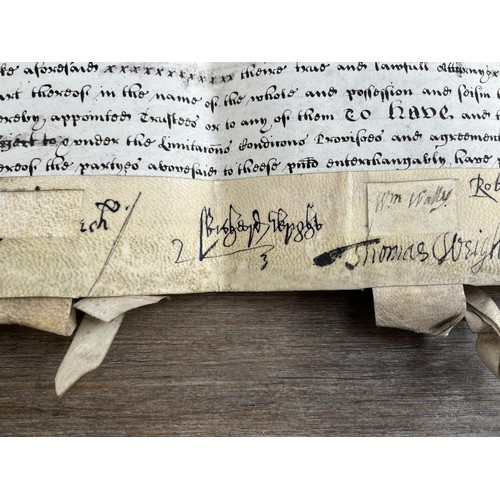 aforesaid xxxxxxxxxxx theire true and lawfull Attorneys
thereof in the name of the whole and possession and seisin
appointed Trustees or to any of them To have and
under the Limitacons Condicons Provisoes and agreemen
the partyes abovesaid to theese pnts enterchangably have
Rob
Wm Wally
2 Richard Wright 3
Thomas Wrigh